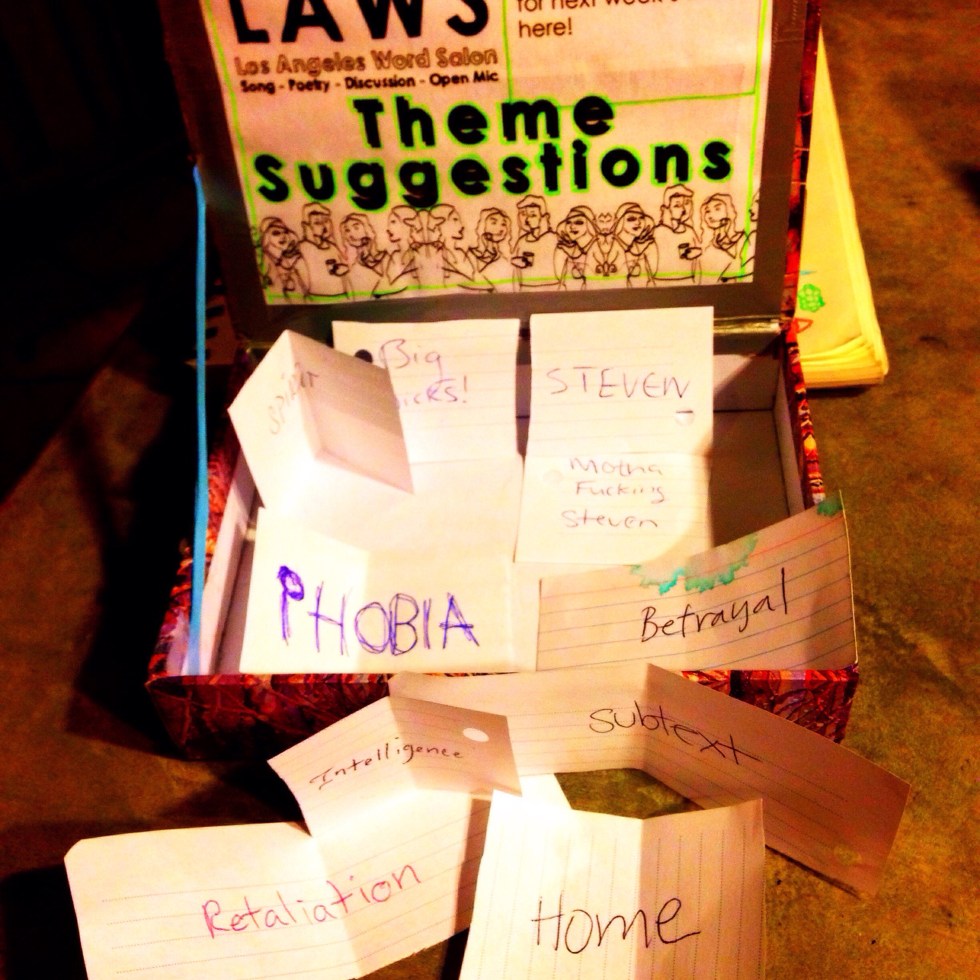 LAWS
for next week's
here!
Los Angeles Word Salon
Song - Poetry - Discussion - Open Mic
Theme
Suggestions
Big
STEVEN
Motha
Fucking
Steven
PHOBIA
Betrayal
Subtext
Intelligence
Retaliation
Home